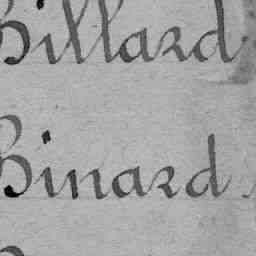 Billard
Binard